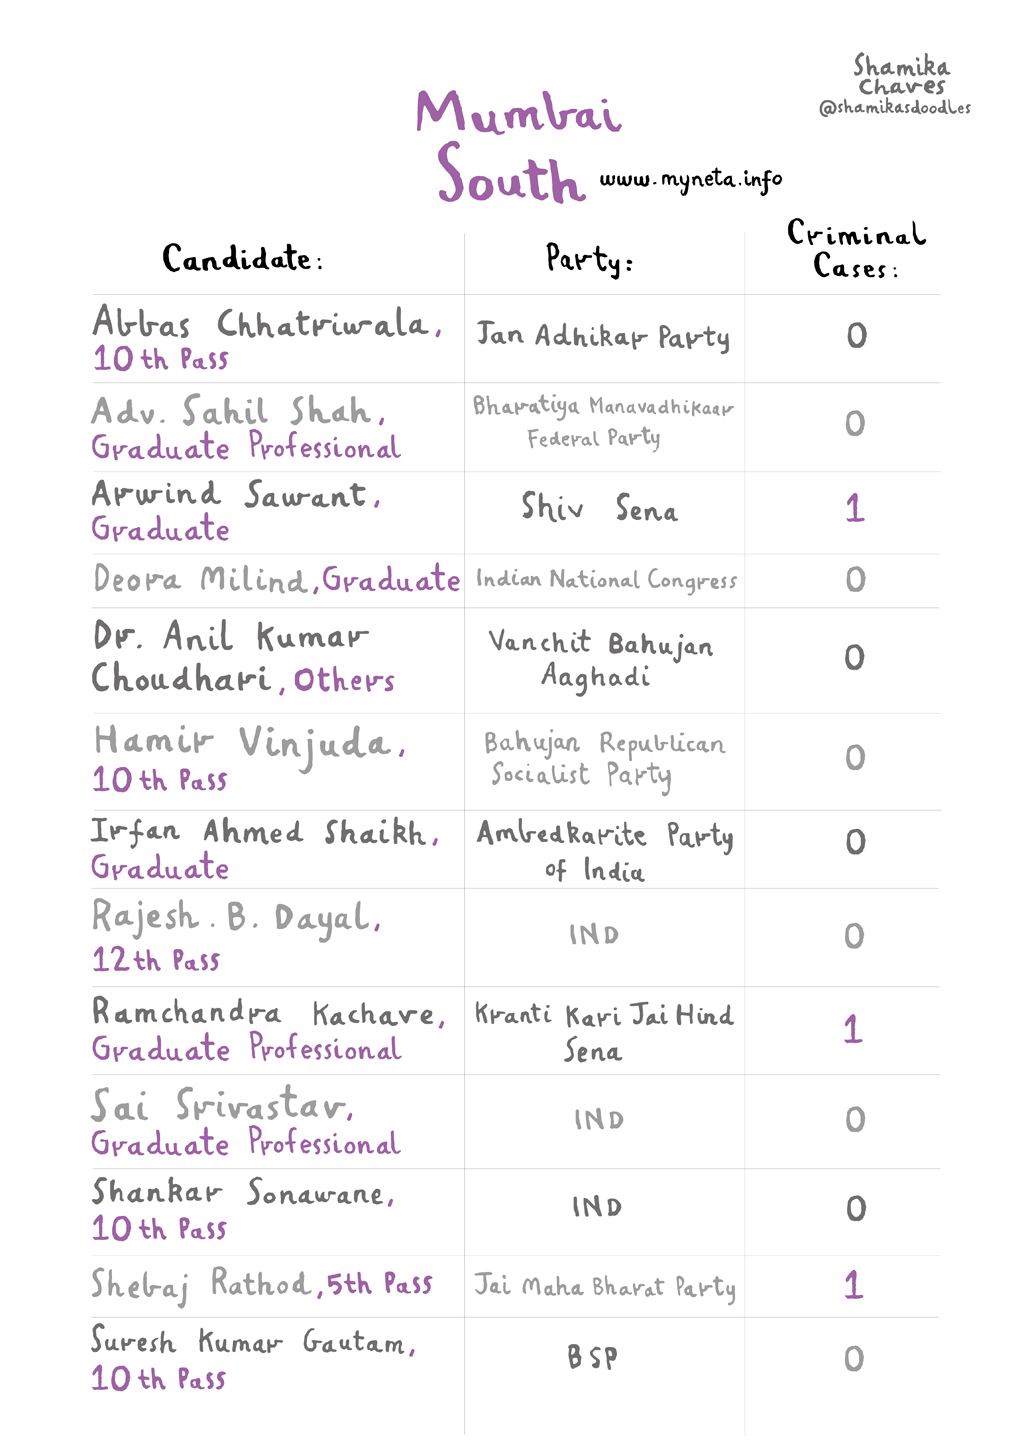 Shamika
Chaves
@shamikasdoodles
Mumbai
South www.myneta.info
Candidate: Party: Criminal
Cases:
Abbas Chhatriwala,
10th Pass
Jan Adhikar Party
0
Adv. Sahil Shah,
Graduate Professional
Bharatiya Manavadhikaar
Federal Party
0
Arwind Sawant,
Graduate
Shiv Sena
1
Deora Milind, Graduate
Indian National Congress
0
Dr. Anil Kumar
Choudhari, Others
Vanchit Bahujan
Aaghadi
0
Hamir Vinjuda,
10th Pass
Bahujan Republican
Socialist Party
0
Irfan Ahmed Shaikh,
Graduate
Ambedkarite Party
of India
0
Rajesh. B. Dayal,
12th Pass
IND
0
Ramchandra Kachave,
Graduate Professional
Kranti Kari Jai Hind
Sena
1
Sai Srivastav,
Graduate Professional
IND
0
Shankar Sonawane,
10th Pass
IND
0
Shebaj Rathod, 5th Pass
Jai Maha Bharat Party
1
Suresh Kumar Gautam,
10th Pass
BSP
0